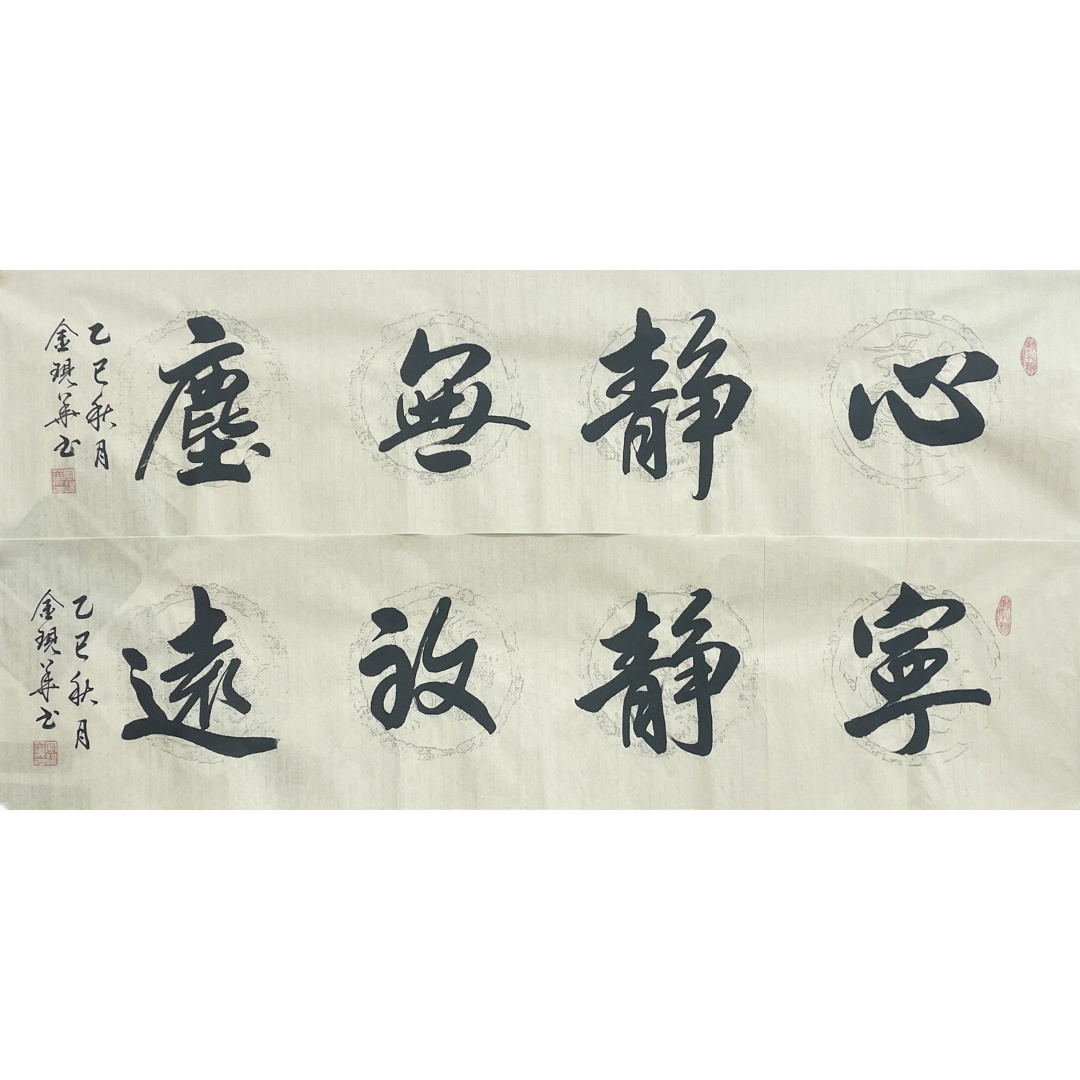 心静無塵
乙巳秋月
金琪華书
寧静致遠
乙巳秋月
金琪華书